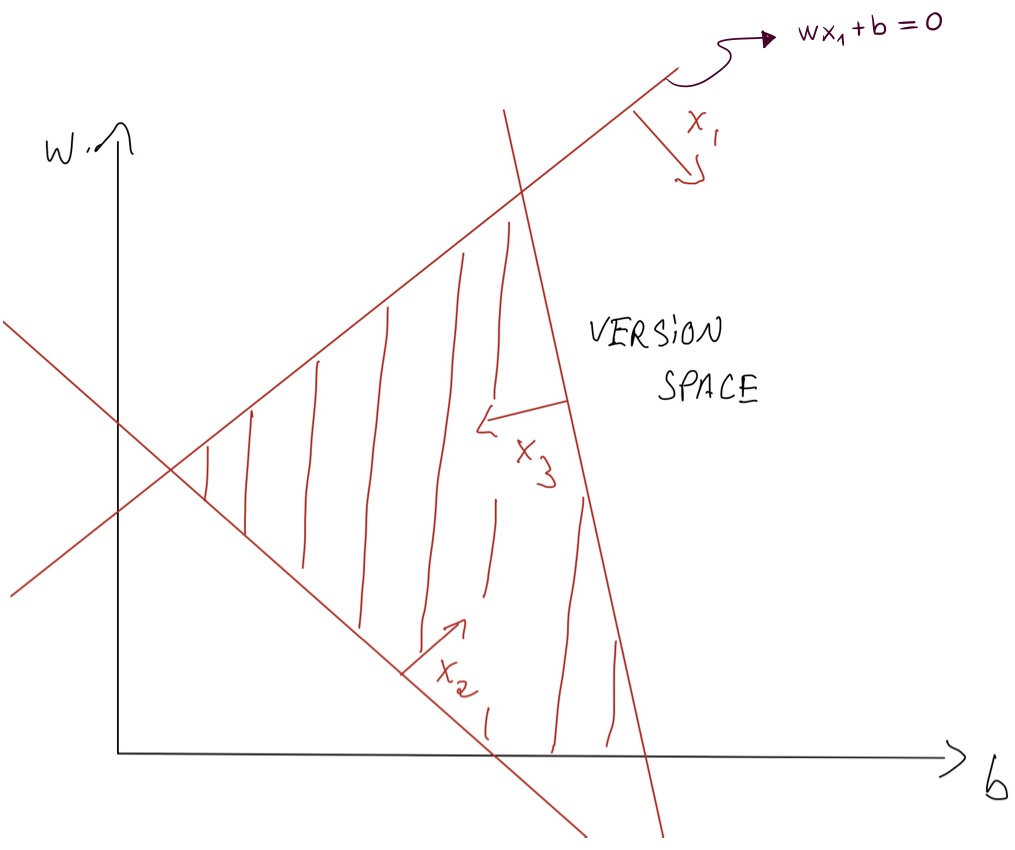 wx₁+b=0
x₁
w
VERSION
SPACE
x₃
x₂
b